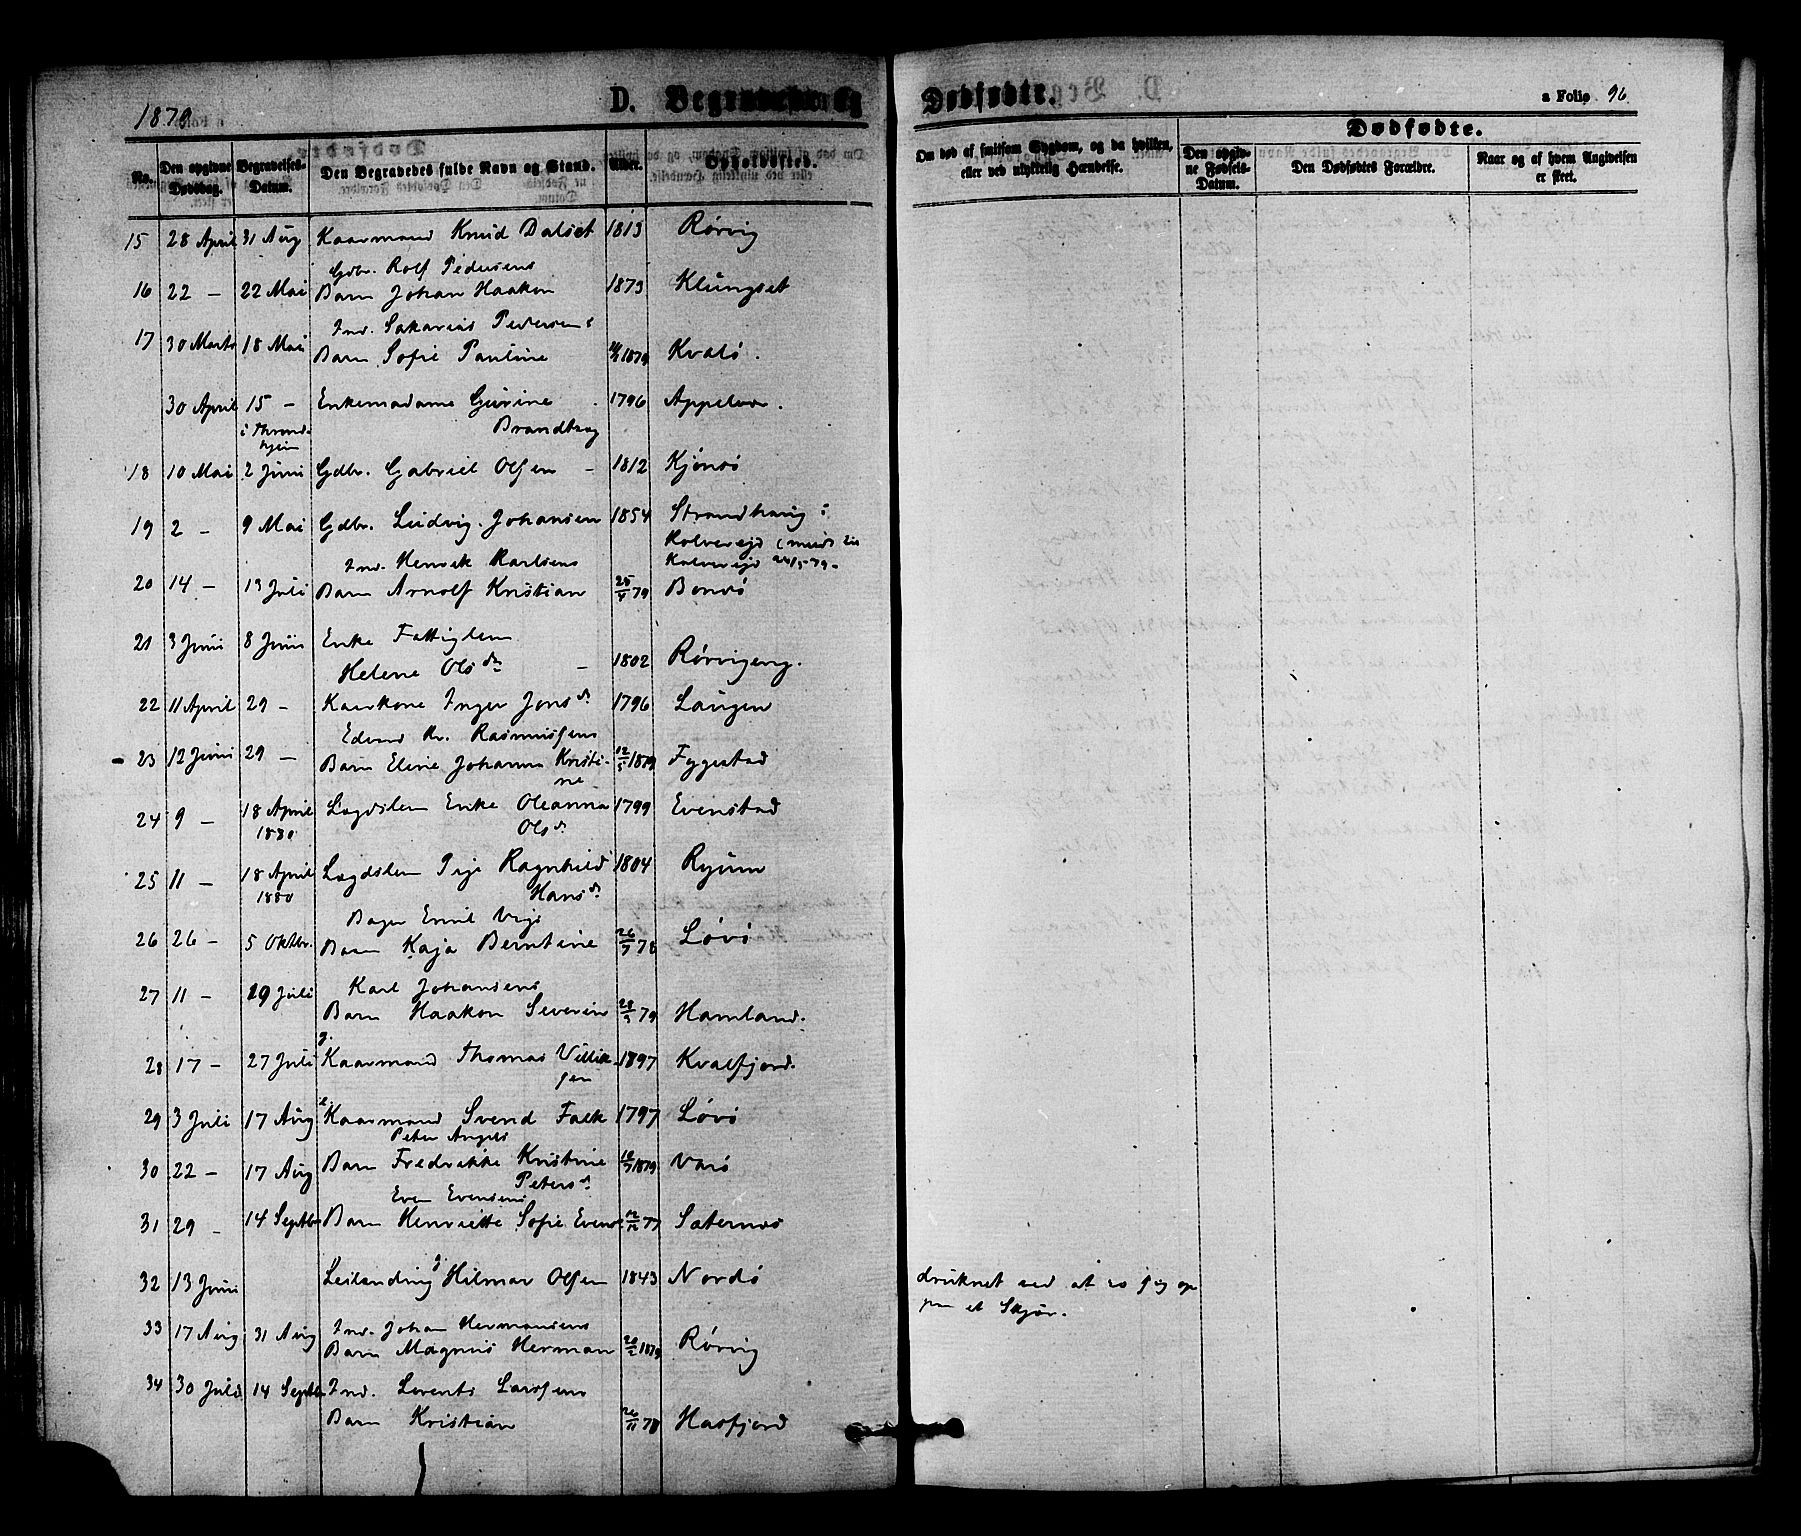 1879
D. Begravede og Dødfødte.
a Folio 96
Dødfødte.
No. Den opgivne Dødsdag. Begravelses-Datum. Den Begravedes fulde Navn og Stand. Alder. Opholdssted.
Om død af smitsom Sygdom, og da hvilken, eller ved ulykkelig Hændelse. Den opgivne Fødsels-Datum. Den Dødfødtes Forældre. Naar og af hvem Angivelsen er skeet.
15 28 April 31 Aug Kaarmand Knud Dalset 1813 Rørvig
Gdbr. Rolf Pedersens
16 22 – 22 Mai Barn Johan Haakon 1873 Klungset
Ind. Sakarias Pedersens
17 30 Marts 18 Mai Barn Sofie Pauline 1879 Kvalø.
30 April 15 – Enkemadame Gurine 1796 Appelvær.
i Thrond- Brandtzæg
hjem
18 10 Mai 2 Juni Gdbr. Gabriel Olsen – 1812 Kjønsø
19 2 – 9 Mai Gdbr. Ludvig Johansen 1854 Strandhaug i
Kolvereid
Ind. Henrik Karlsens Kolvereid
20 14 – 13 Juli Barn Arnolf Kristian 25/4 79 Bonsø
21 3 Juni 8 Juni Enke Fattiglem
Helene Olsdr – 1802 Rørvigeng.
22 11 April 29 – Kaarkone Inger Jonsd. 1796 Laugen
Edvard Kr. Rasmussens
23 12 Juni 29 – Barn Eline Johanna Kristi- 12/5 1879 Fyggestad
ne
24 9 – 18 April Lægdslem Enke Oleanna 1799 Evenstad
1880 Olsd.
25 11 – 18 April Lægdslem Pige Ragnhild 1804 Ryum
1880 Hansd.
Bager Emil Vigs
26 26 – 5 Oktbr. Barn Kaja Berntine 26/7 78 Løvø
Karl Johansens
27 11 – 29 Juli Barn Haakon Severin 79 Hamland.
28 17 – 27 Juli Kaarmand Thomas Villik- 1897 Kvalfjord.
sen
29 3 Juli 17 Aug Kaarmand Svend Falk 1797 Løvø
Peter Angels
30 22 – 17 Aug Barn Fredrikke Kristine 1879 Varø
Petersd.
Even Evensens
31 29 – 14 Septbr Barn Henriette Sofie Evens 12/12 77 Sæternes
32 13 Juni Leilænding Hilmar Olsen 1843 Nordø druknet ved at ro sig op
paa et Skjær.
33 17 Aug 31 Aug Ind. Johan Hermansens
Barn Magnus Herman 1879 Rørvig
34 30 Juli 14 Septbr Ind. Lorents Larssens
Barn Kristian 26/11 78 Hasfjord